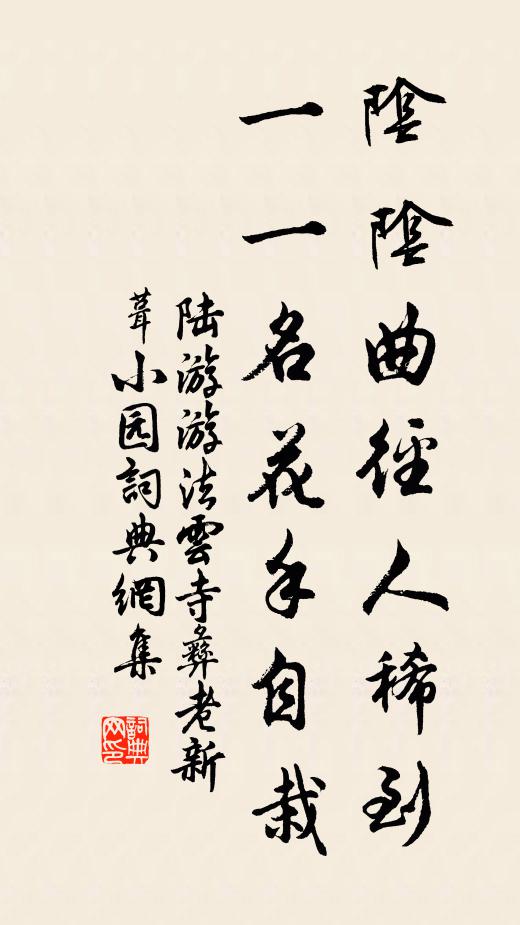 陰陰曲徑人稀到
一一名花手自栽
陆游游法雲寺彝老新
葺小园詞典網集
詞典